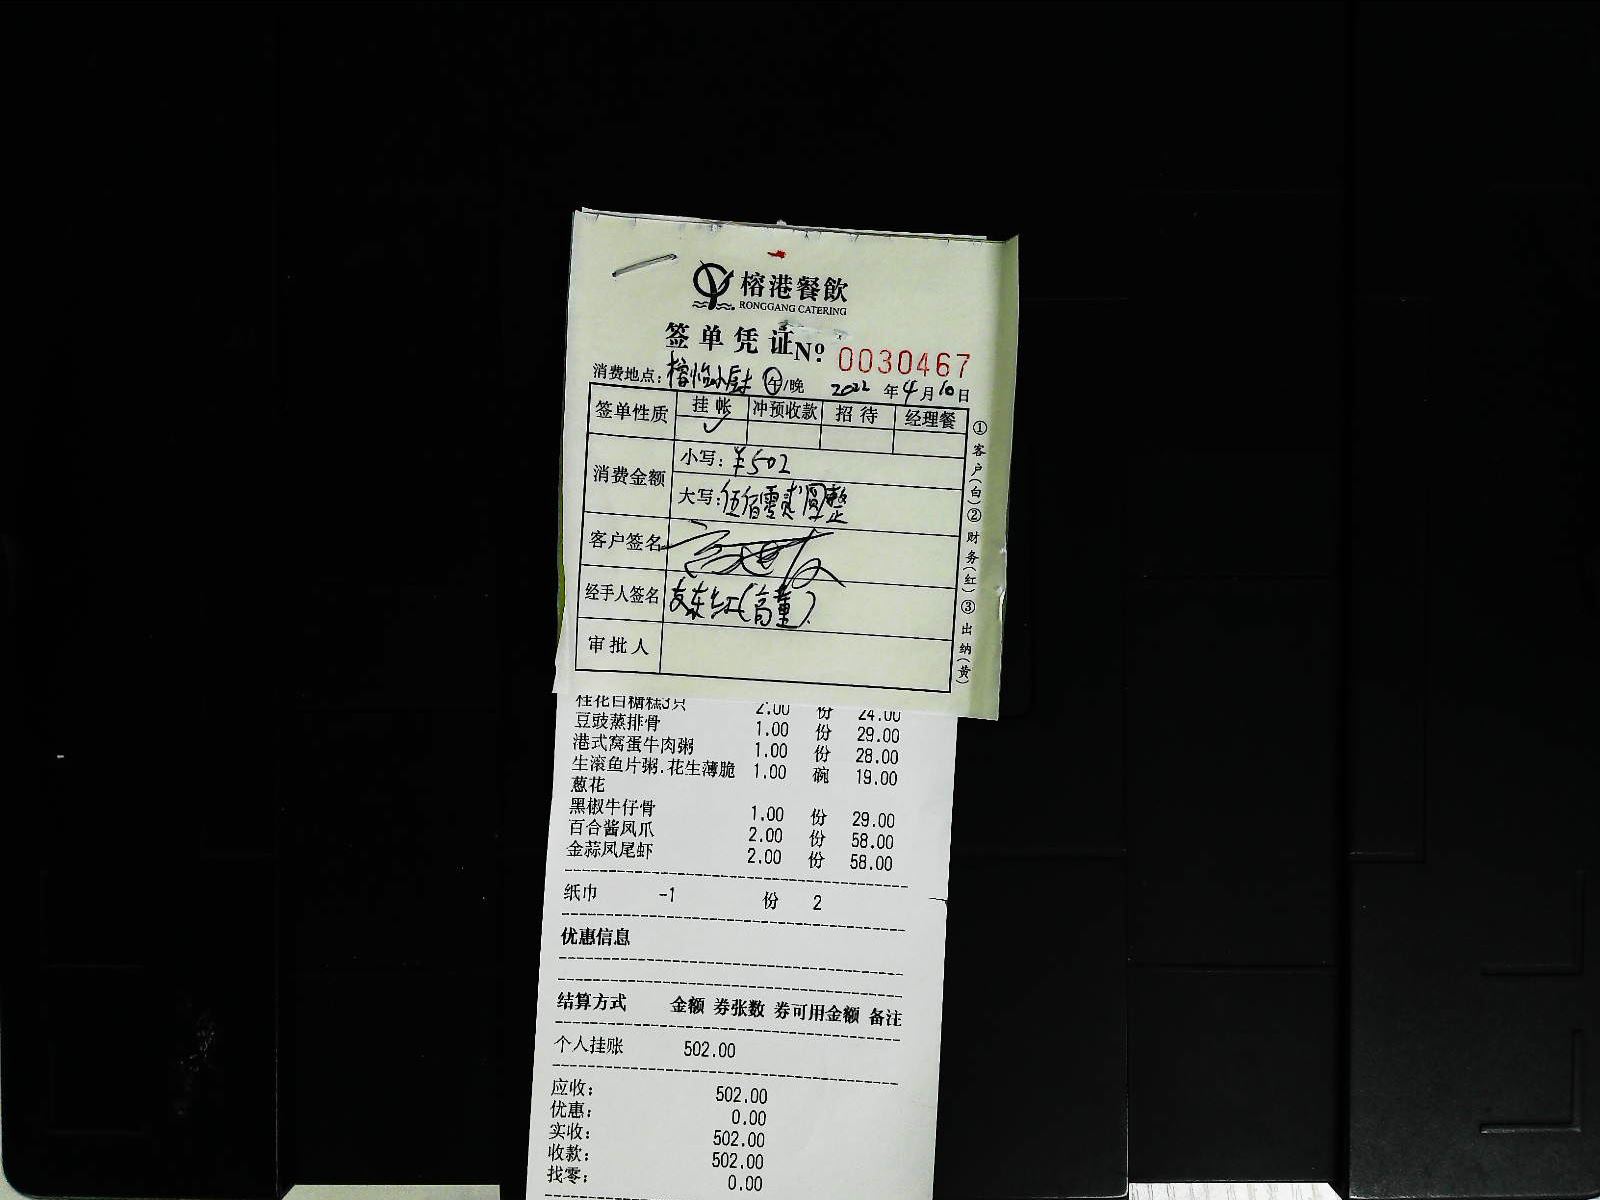 榕港餐飲
RONGGANG CATERING
签单凭证 Nº 0030467
消费地点：榕怡小厨 午/晚 2022年4月10日
签单性质 挂帐 冲预收款 招待 经理餐
✓
消费金额 小写：¥502
大写：伍佰零贰圆整
客户签名
经手人签名 东红(高董)
审批人
①客户(白)②财务(红)③出纳(黄)
桂花白糖糕3只 2.00 份 24.00
豆豉蒸排骨 1.00 份 29.00
港式窝蛋牛肉粥 1.00 份 28.00
生滚鱼片粥.花生薄脆 1.00 碗 19.00
葱花
黑椒牛仔骨 1.00 份 29.00
百合酱凤爪 2.00 份 58.00
金蒜凤尾虾 2.00 份 58.00
纸巾 -1 份 2
优惠信息
结算方式 金额 券张数 券可用金额 备注
个人挂账 502.00
应收： 502.00
优惠： 0.00
实收： 502.00
收款： 502.00
找零： 0.00